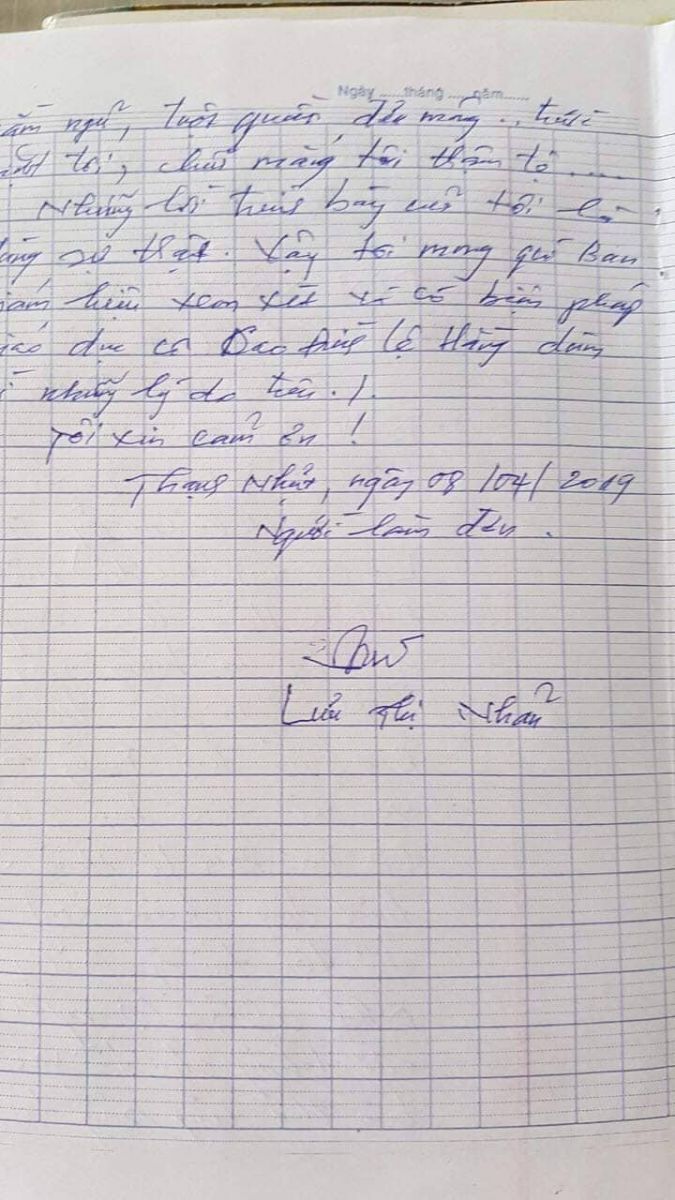 Ngày ......tháng .....năm......
ngữ, tuột quần, mông ... trước
tôi, chửi mắng tôi thậm tệ ....
Những lời trình bày của tôi là
sự thật. Vậy tôi mong quý Ban
hiệu xem xét và có biện pháp
dục cô Lệ Hằng
những lý do trên./.
Tôi xin cảm ơn!
Thạng Nhựt, ngày 08/04/2019
Người làm đơn.
Lưu Thị Nhẩn